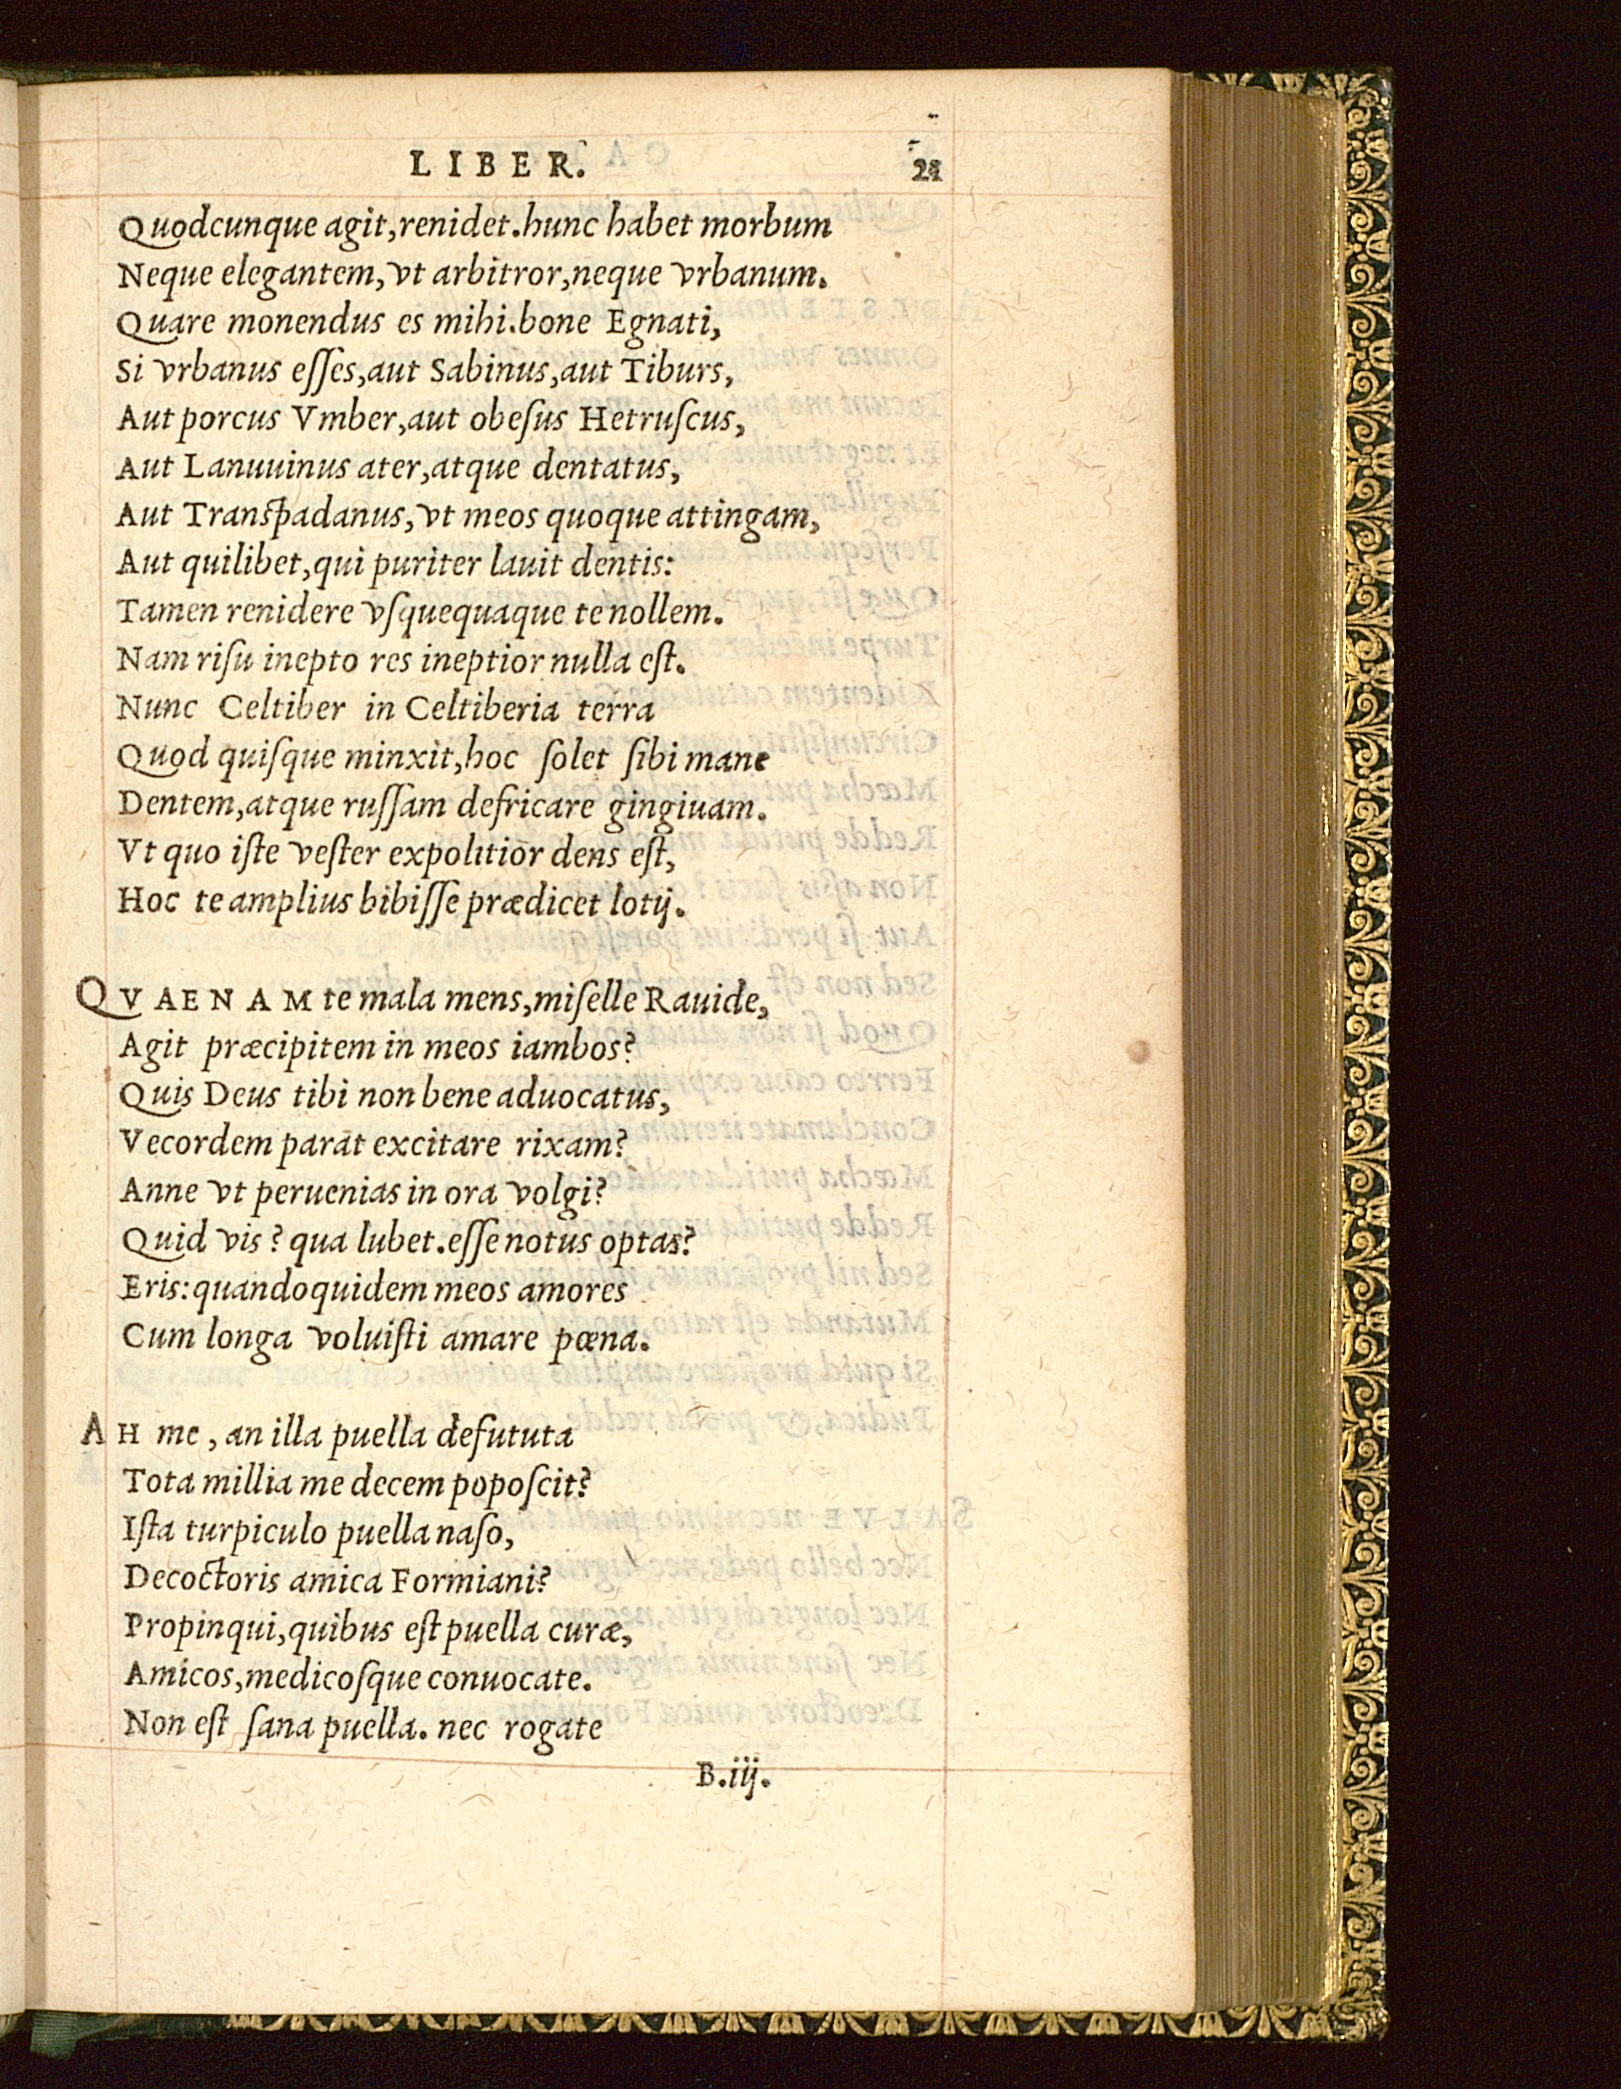 LIBER.
21
Quodcunque agit,renidet.hunc habet morbum
Neque elegantem,vt arbitror,neque vrbanum.
Quare monendus es mihi.bone Egnati,
Si vrbanus eſſes,aut Sabinus,aut Tiburs,
Aut porcus Vmber,aut obeſus Hetruſcus,
Aut Lanuuinus ater,atque dentatus,
Aut Tranſpadanus,vt meos quoque attingam,
Aut quilibet,qui puriter lauit dentis:
Tamen renidere vſquequaque te nollem.
Nam riſu inepto res ineptior nulla eſt.
Nunc Celtiber in Celtiberia terra
Quod quiſque minxit,hoc ſolet ſibi mane
Dentem,atque ruſſam defricare gingiuam.
Vt quo iſte veſter expolitior dens eſt,
Hoc te amplius bibiſſe prædicet lotij.
QVAENAM te mala mens,miſelle Rauide,
Agit præcipitem in meos iambos?
Quis Deus tibi non bene aduocatus,
Vecordem parat excitare rixam?
Anne vt peruenias in ora volgi?
Quid vis? qua lubet.eſſe notus optas?
Eris:quandoquidem meos amores
Cum longa voluiſti amare pœna.
AH me, an illa puella defututa
Tota millia me decem popoſcit?
Iſta turpiculo puella naſo,
Decoctoris amica Formiani?
Propinqui,quibus eſt puella curæ,
Amicos,medicoſque conuocate.
Non eſt ſana puella. nec rogate
B.iij.